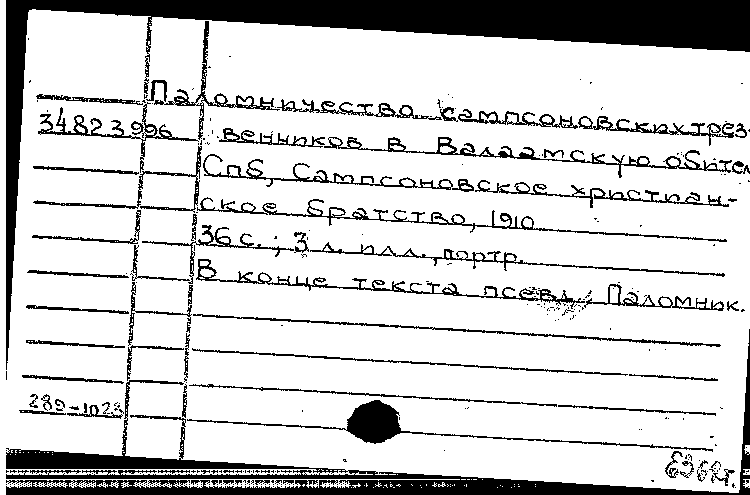 Паломничество сампсоновских трез-
34.82 3996 венников в Валаамскую обител
Спб, Сампсоновское христиан-
ское братство, 1910
36 с.; 3 л. илл., портр.
В конце текста псевд.: Паломник.
289-1023